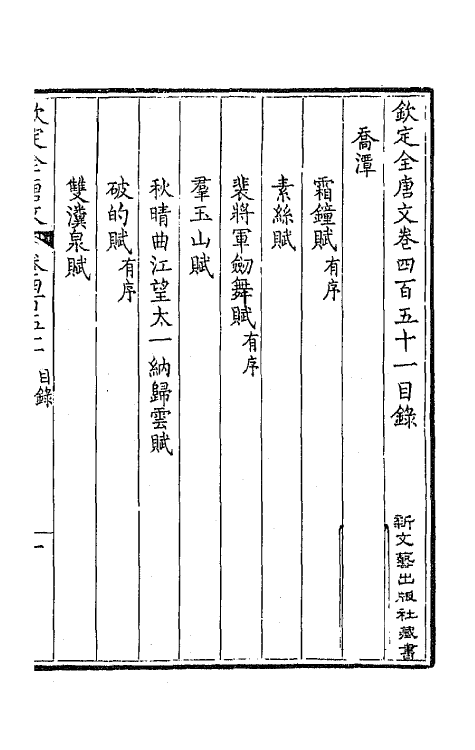 欽定全唐文卷四百五十一目錄
新文藝出版社藏書
喬潭
霜鐘賦有序
素絲賦
裴將軍劒舞賦有序
羣玉山賦
秋晴曲江望太一納歸雲賦
破的賦有序
雙瀵泉賦
目錄
一